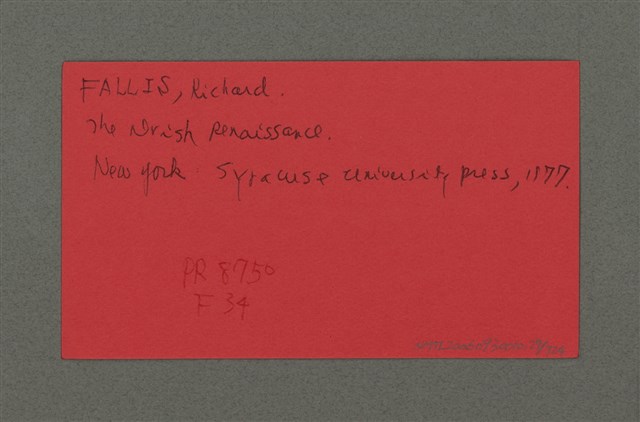 FALLIS, Richard.
The Irish Renaissance.
New York: Syracuse university press, 1977.
PR 8750
F 34